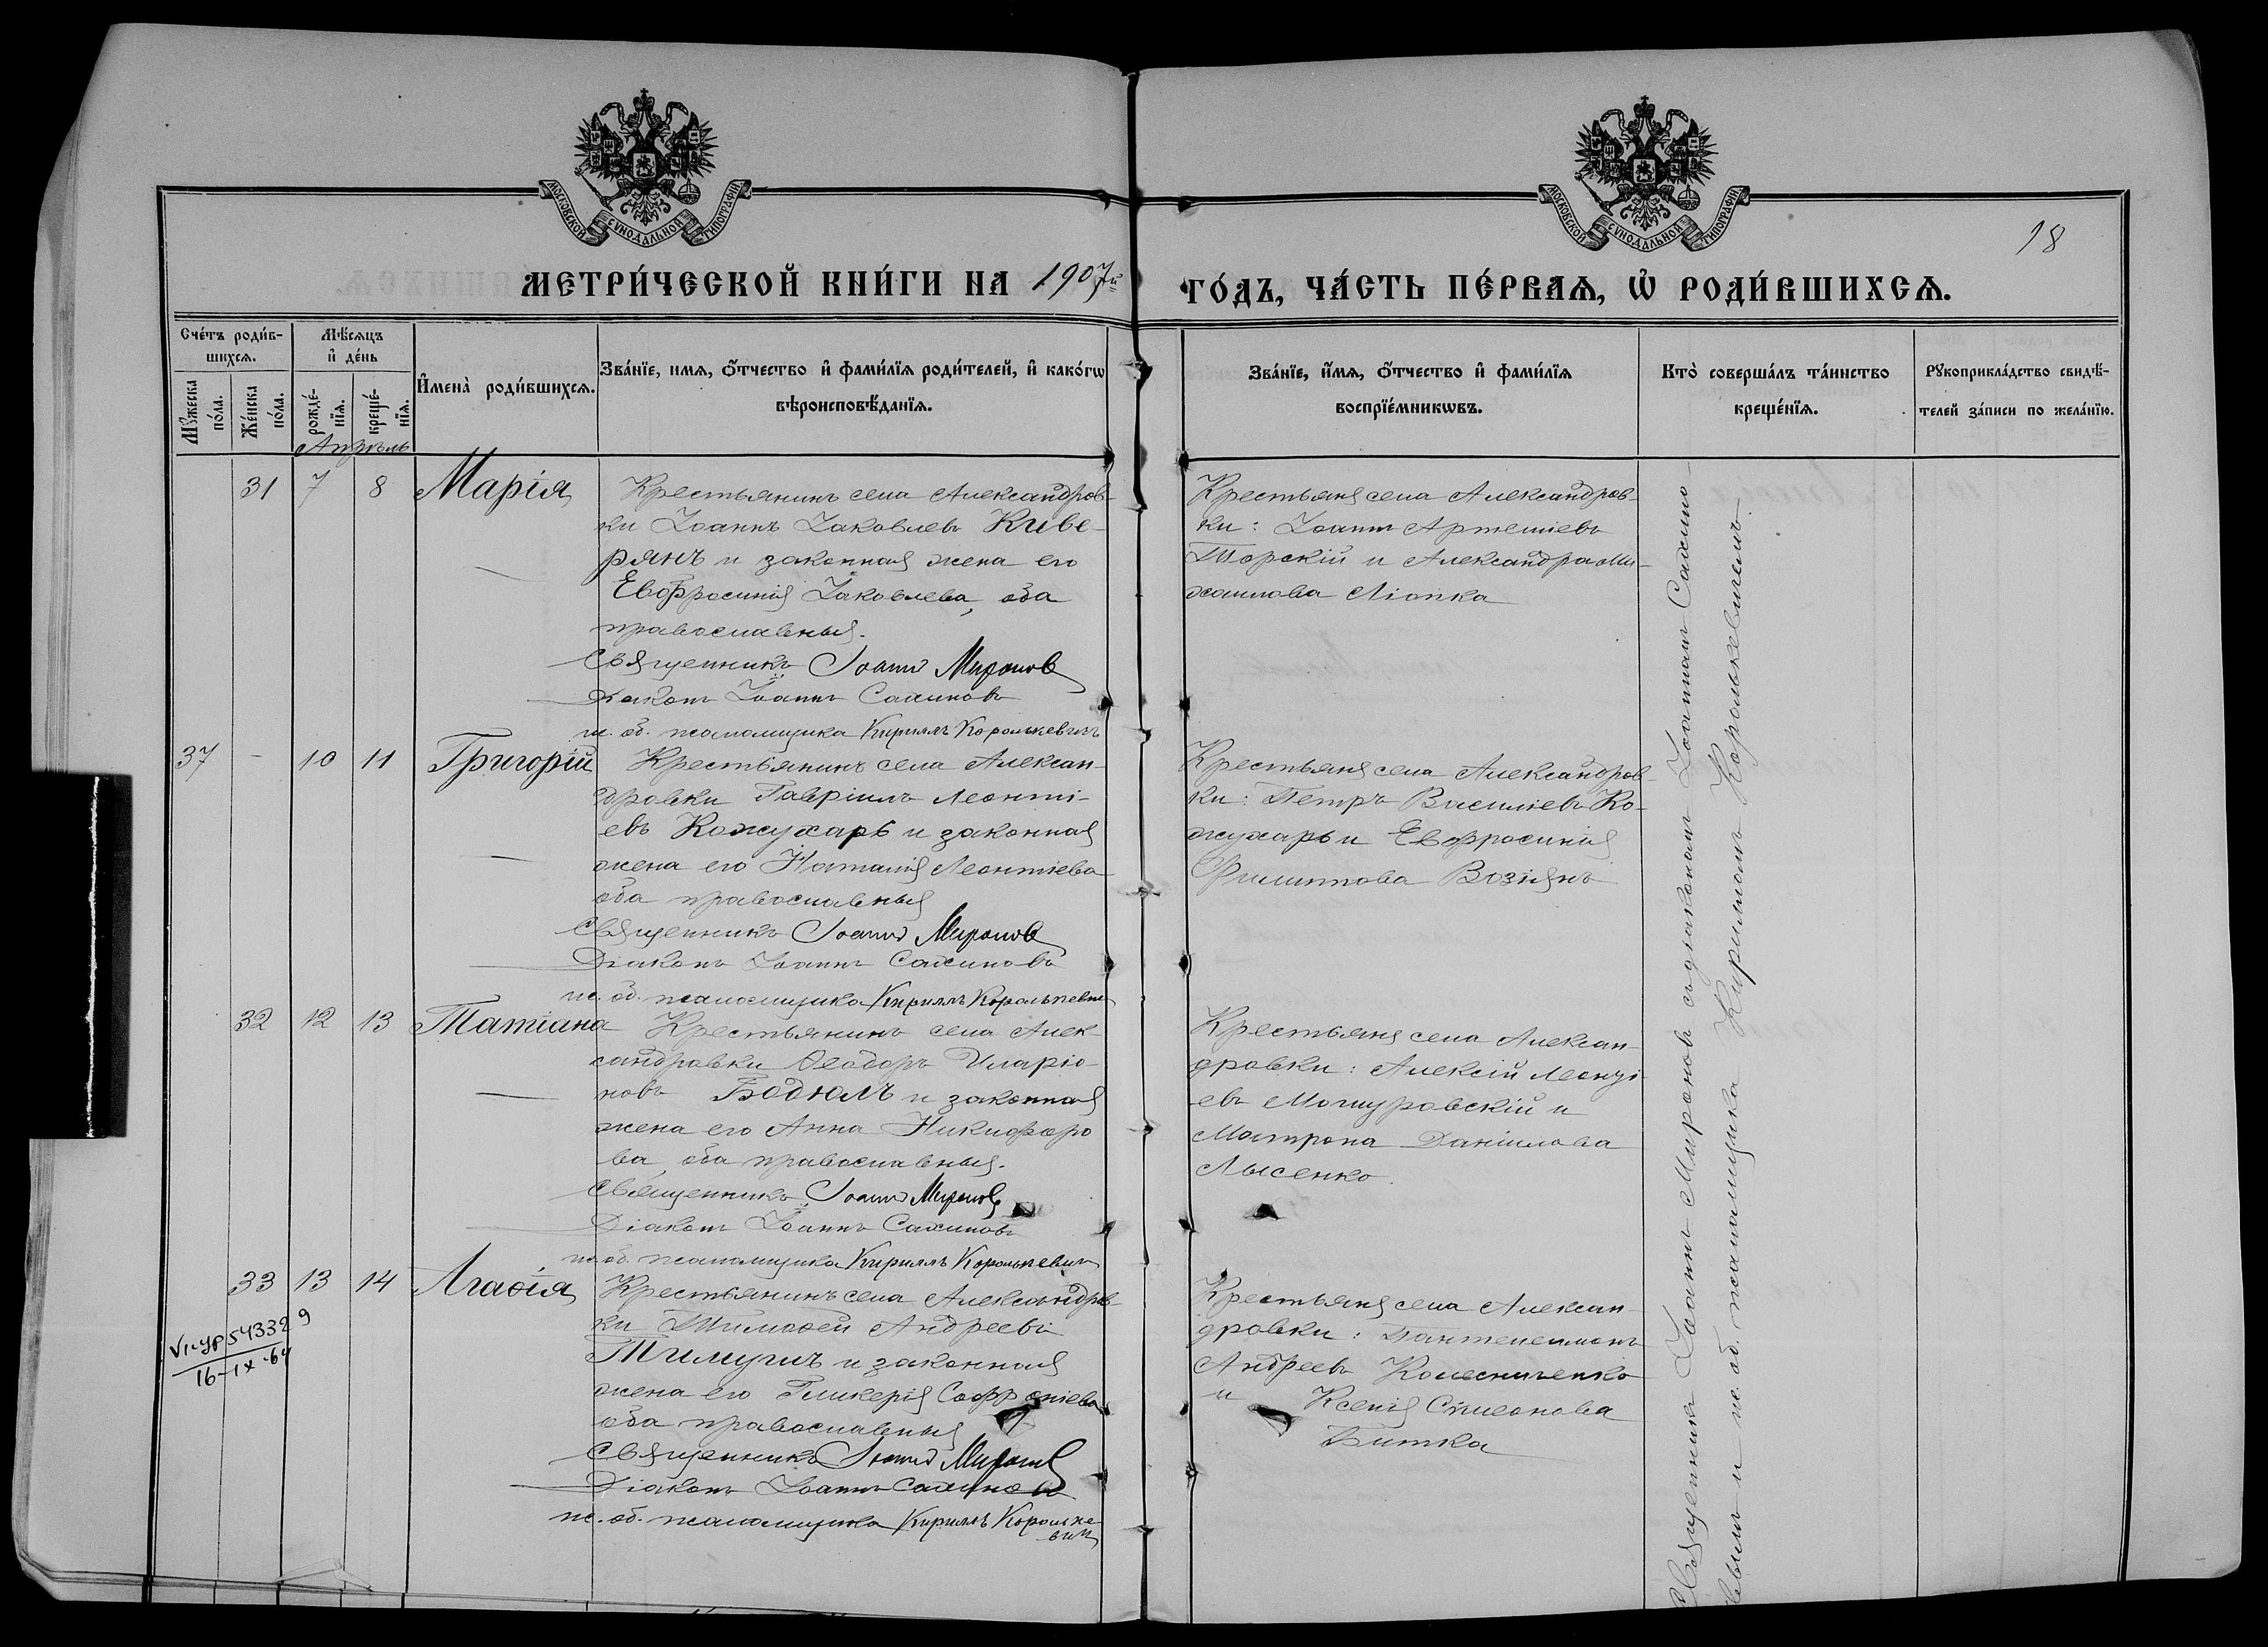 МОСКОВСКОЙ СѴНОДАЛЬНОЙ ТИПОГРАФІИ
МОСКОВСКОЙ СѴНОДАЛЬНОЙ ТИПОГРАФІИ
18
МЕТРИ́ЧЕСКОЙ КНИ́ГИ НА 1907й ГО́ДЪ, ЧА́СТЬ ПЕ́РВАѦ, Ѡ҆ РОДИ́ВШИХСѦ.
Сче́тъ роди́в-
шихсѧ.
Мꙋ́жеска по́ла.
Же́нска по́ла.
Мѣ́сѧцъ
и҆ де́нь
рожде́-
нїѧ.
креще́-
нїѧ.
И҆мена̀ роди́вшихсѧ.
Зва́нїе, имѧ, ѻ҆́тчество и҆ фами́лїѧ роди́телей, и҆ како́гѡ
вѣроисповѣ́данїѧ.
Зва́нїе, и҆́мѧ, ѻ҆́тчество и҆ фами́лїѧ
воспрїе́мникѡвъ.
Кто̀ соверша́лъ та́инство
креще́нїѧ.
Рꙋкоприкла́дство свидѣ́-
телей за́писи по жела́нїю.
Апрѣль
31 7 8 Марія
Крестьянинъ села Александров-
ки Іоаннъ Іаковлевъ Киве-
рянъ и законная жена его
Евфросинія Іаковлева, оба
православныя.
Священникъ Іоаннъ Мироновъ
Діаконъ Іоаннъ Сахиновъ
ис. об. псаломщика Кириллъ Королькевичъ
Крестьяне села Александров-
ки: Іоаннъ Артеміевъ
Торскій и Александра Ми-
хаилова Ліопка
37 - 10 11 Григорій
Крестьянинъ села Алексан-
дровки Гавріилъ Леонті-
евъ Кожухарь и законная
жена его Наталія Леонтіева
оба православныя
Священникъ Іоаннъ Мироновъ
Діаконъ Іоаннъ Сахиновъ
ис. об. псаломщика Кириллъ Королькевич
Крестьяне села Александров-
ки: Петръ Василіевъ Ко-
жухарь и Евфросинія
Филиппова Возіянъ
32 12 13 Татіана
Крестьянинъ села Алек-
сандровки Ѳеодоръ Иларіо-
новъ Бодюлъ и законная
жена его Анна Никифоро
ва, оба православныя.
Священникъ Іоаннъ Мироновъ
Діаконъ Іоаннъ Сахиновъ
ис. об. псаломщика Кириллъ Королькевич
Крестьяне села Алексан-
дровки: Алексій Леонті-
евъ Мошуровскій и
Матрона Даніилова
Лысенко.
33 13 14 Агаѳія
Крестьянинъ села Александров-
ки Тимоѳей Андреевъ
Тимучъ и законная
жена его Гликерія Софроніева
оба православныя
Священникъ Іоаннъ Мироновъ
Діаконъ Іоаннъ Сахиновъ
ис. об. псаломщика Кириллъ Королькевич
Крестьяне села Алексан-
дровки: Пантелеимонъ
Андреевъ Колесниченко
и Ксенія Симеонова
Битка
543329
16-IX-64
Священникъ Іоаннъ Мироновъ съ діакономъ Іоанномъ Сахино-
вымъ и ис. об. псаломщика Кирилломъ Королькевичемъ.